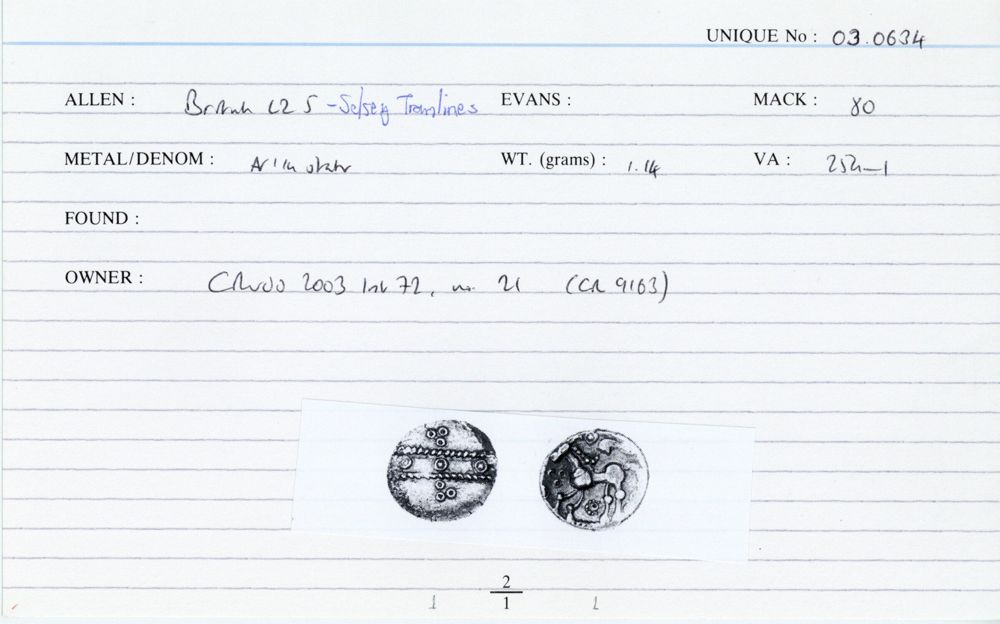 UNIQUE No : 03.0634
ALLEN : British L25 - Selsey Tramlines EVANS : MACK : 80
METAL/DENOM : AV 1/4 stater WT. (grams) : 1.14 VA : 252-1
FOUND :
OWNER : CR 2003 list 72, no. 21 (CR 9163)
2
1 1 1